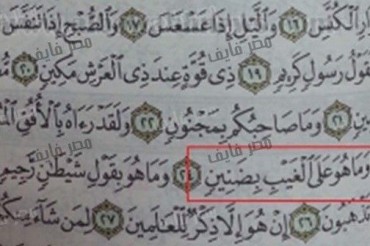 ارِ الْكُنَّسِ ١٦ وَالَّيْلِ إِذَا عَسْعَسَ ١٧ وَالصُّبْحِ إِذَا تَنَفَّسَ
لَقَوْلُ رَسُولٍ كَرِيمٍ ١٩ ذِي قُوَّةٍ عِندَ ذِي الْعَرْشِ مَكِينٍ ٢٠
٢١ وَمَا صَاحِبُكُم بِمَجْنُونٍ ٢٢ وَلَقَدْ رَءَاهُ بِالْأُفُقِ
وَمَا هُوَ عَلَى الْغَيْبِ بِضَنِينٍ ٢٤ وَمَا هُوَ بِقَوْلِ شَيْطَٰنٍ رَّجِيمٍ
تَذْهَبُونَ ٢٦ إِنْ هُوَ إِلَّا ذِكْرٌ لِّلْعَٰلَمِينَ ٢٧ لِمَن شَآءَ مِنكُمْ
مصر فايف
مصر فايف
مصر فايف
مصر فايف